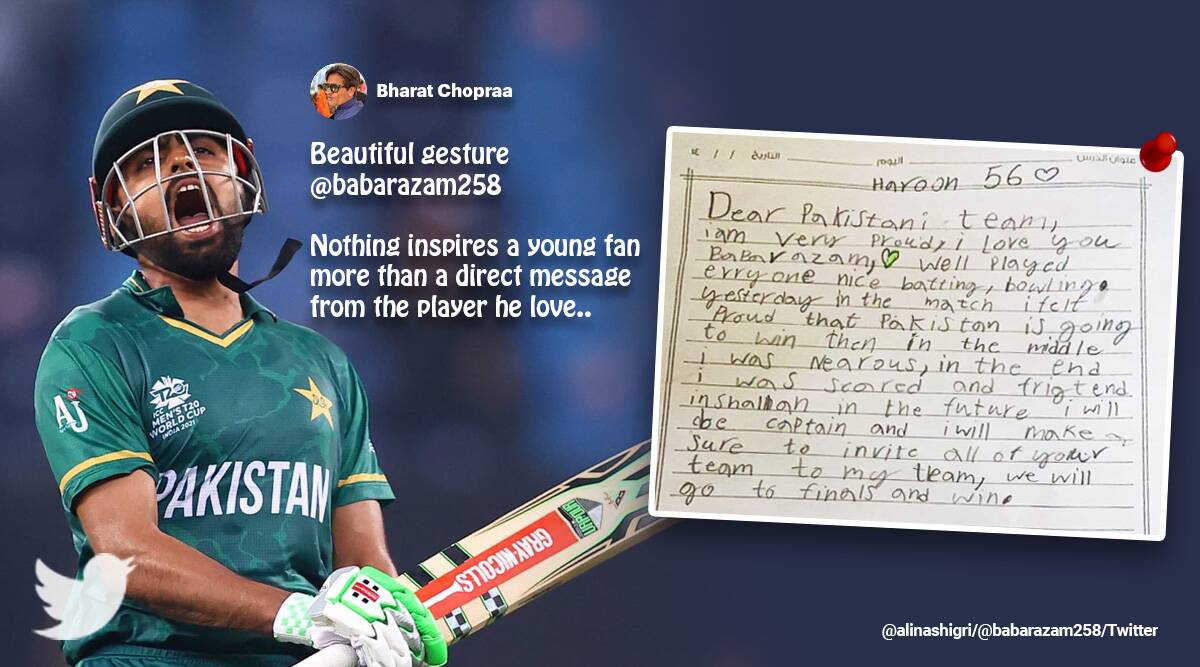 Bharat Chopraa
Beautiful gesture
@babarazam258
Nothing inspires a young fan
more than a direct message
from the player he love..
AJ
T20
ICC
MEN'S T20
WORLD CUP
INDIA 2021
PAKISTAN
GRAY-NICOLLS
عنوان الدرس
اليوم
التاريخ / / ١٤
Haroon 56
Dear Pakistani team,
iam very proudy i love you
BaBar azam, well Played
erryone nice batting, bowling.
yesterday in the match i felt
Proud that Pakistan is going
to win then in the middle
i was nearous, in the end
i was scared and frigtend
inshallah in the future i will
be captain and i will make
sure to invite all of your
team to my team, we will
go to finals and win.
@alinashigri/@babarazam258/Twitter